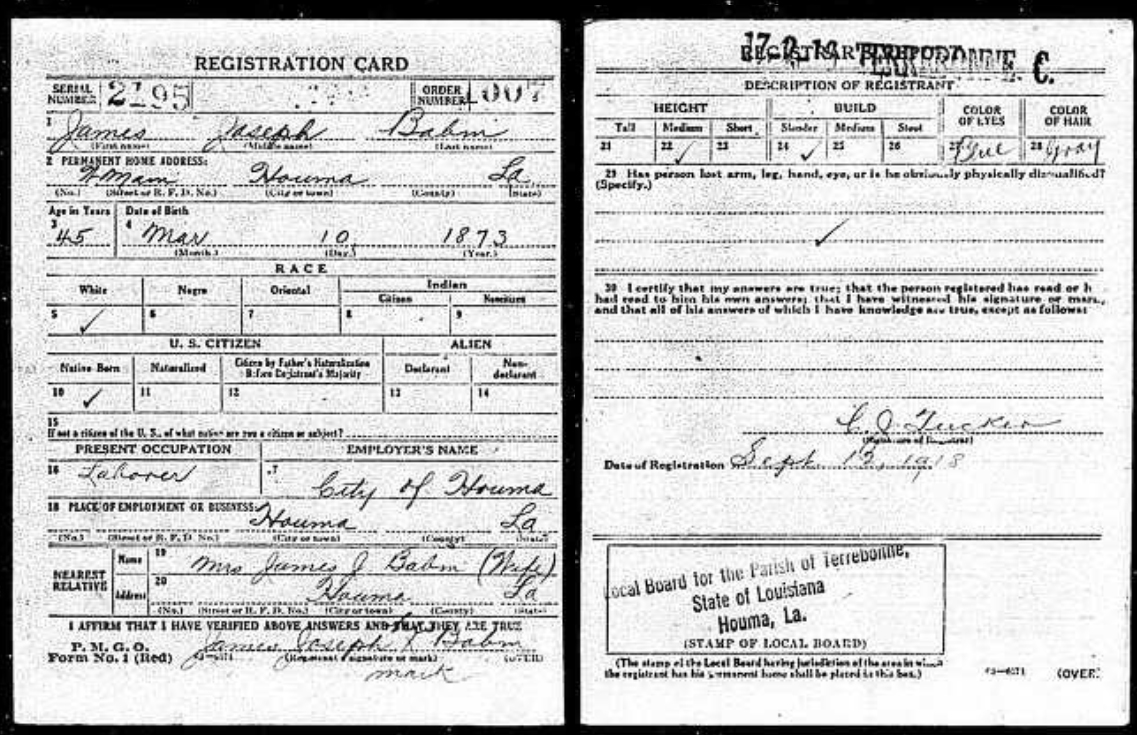 REGISTRATION CARD
SERIAL NUMBER 2195
ORDER NUMBER 1007
1 James Joseph Babin
(First name) (Middle name) (Last name)
2 PERMANENT HOME ADDRESS:
Main Houma La
(No.) (Street or R. F. D. No.) (City or town) (County) (State)
Age in Years Date of Birth
3 45 4 Mar 10 1873
(Month.) (Day.) (Year.)
RACE
White Negro Oriental Indian
Citizen Noncitizen
5 ✓ 6 7 8 9
U. S. CITIZEN ALIEN
Native Born Naturalized Citizen by Father's Naturalization Before Registrant's Majority Declarant Non-declarant
10 ✓ 11 12 13 14
15
If not a citizen of the U. S., of what nation are you a citizen or subject?
PRESENT OCCUPATION EMPLOYER'S NAME
16 Laborer 17 City of Houma
18 PLACE OF EMPLOYMENT OR BUSINESS:
Houma La
(No.) (Street or R. F. D. No.) (City or town) (County) (State)
NEAREST RELATIVE
Name 19 Mrs James J Babin (Wife)
Address 20 Houma La
(No.) (Street or R. F. D. No.) (City or town) (County) (State)
I AFFIRM THAT I HAVE VERIFIED ABOVE ANSWERS AND THAT THEY ARE TRUE
P. M. G. O.
Form No. 1 (Red) James Joseph X Babin
(Registrant's signature or mark) (OVER)
mark
17-2-13 C.
DESCRIPTION OF REGISTRANT
HEIGHT BUILD COLOR OF EYES COLOR OF HAIR
Tall Medium Short Slender Medium Stout
21 22 ✓ 23 24 ✓ 25 26 27 Blue 28 Gray
29 Has person lost arm, leg, hand, eye, or is he obviously physically disqualified?
(Specify.)
✓
30 I certify that my answers are true; that the person registered has read or h
had read to him his own answers; that I have witnessed his signature or mark,
and that all of his answers of which I have knowledge are true, except as follows:
C. J. Tucker
(Signature of Registrar)
Date of Registration Sept 12, 1918
Local Board for the Parish of Terrebonne,
State of Louisiana
Houma, La.
(STAMP OF LOCAL BOARD)
(The stamp of the Local Board having jurisdiction of the area in which
the registrant has his permanent home shall be placed in this box.)
(OVER)